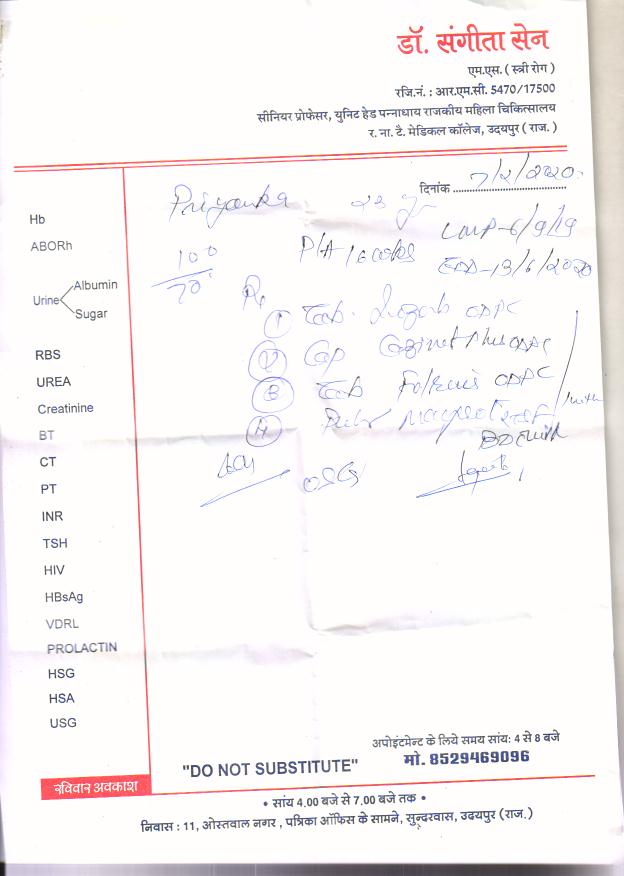 डॉ. संगीता सेन
एम.एस. ( स्त्री रोग )
रजि.नं. : आर.एम.सी. 5470/17500
सीनियर प्रोफेसर, युनिट हेड पन्नाधाय राजकीय महिला चिकित्सालय
र. ना. टै. मेडिकल कॉलेज, उदयपुर ( राज. )
दिनांक 7/2/2020
Priyanka 23 y
Hb
ABORh
Urine Albumin
Sugar
RBS
UREA
Creatinine
BT
CT
PT
INR
TSH
HIV
HBsAg
VDRL
PROLACTIN
HSG
HSA
USG
100
70
P/A
LMP-6/9/19
EDD-13/6/2020
Rx
1 Tab. ODPC
2 Cap ODPC
3 Tab ODPC
4
USG
अपोइंटमेन्ट के लिये समय सांय: 4 से 8 बजे
मो. 8529469096
"DO NOT SUBSTITUTE"
रविवार अवकाश
• सांय 4.00 बजे से 7.00 बजे तक •
निवास : 11, ओस्तवाल नगर , पत्रिका ऑफिस के सामने, सुन्दरवास, उदयपुर (राज.)